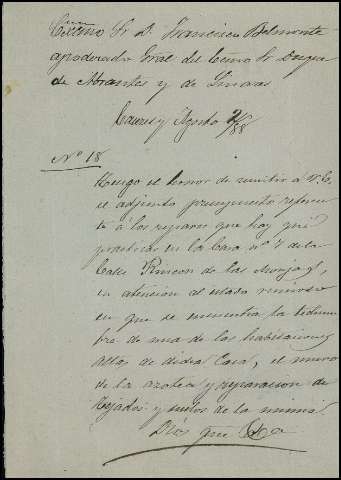 Excmo Sr D. Francisco Belmonte
apoderado Gral del Excmo Sr Duque
de Abrantes y de Linares
Caceres y Agosto 2/88
Nº 18
Tengo el honor de remitir a V.E.
el adjunto presupuesto referen-
te á los reparos que hay que
practicar en la Casa nº 7 de la
Calle Rincon de las Monjas,
en atencion al estado ruinoso
en que se encuentra la techum-
bre de una de las habitaciones
altas de dicha Casa, el muro
de la azotea y reparacion de
tejados y suelos de la misma
Dios gue